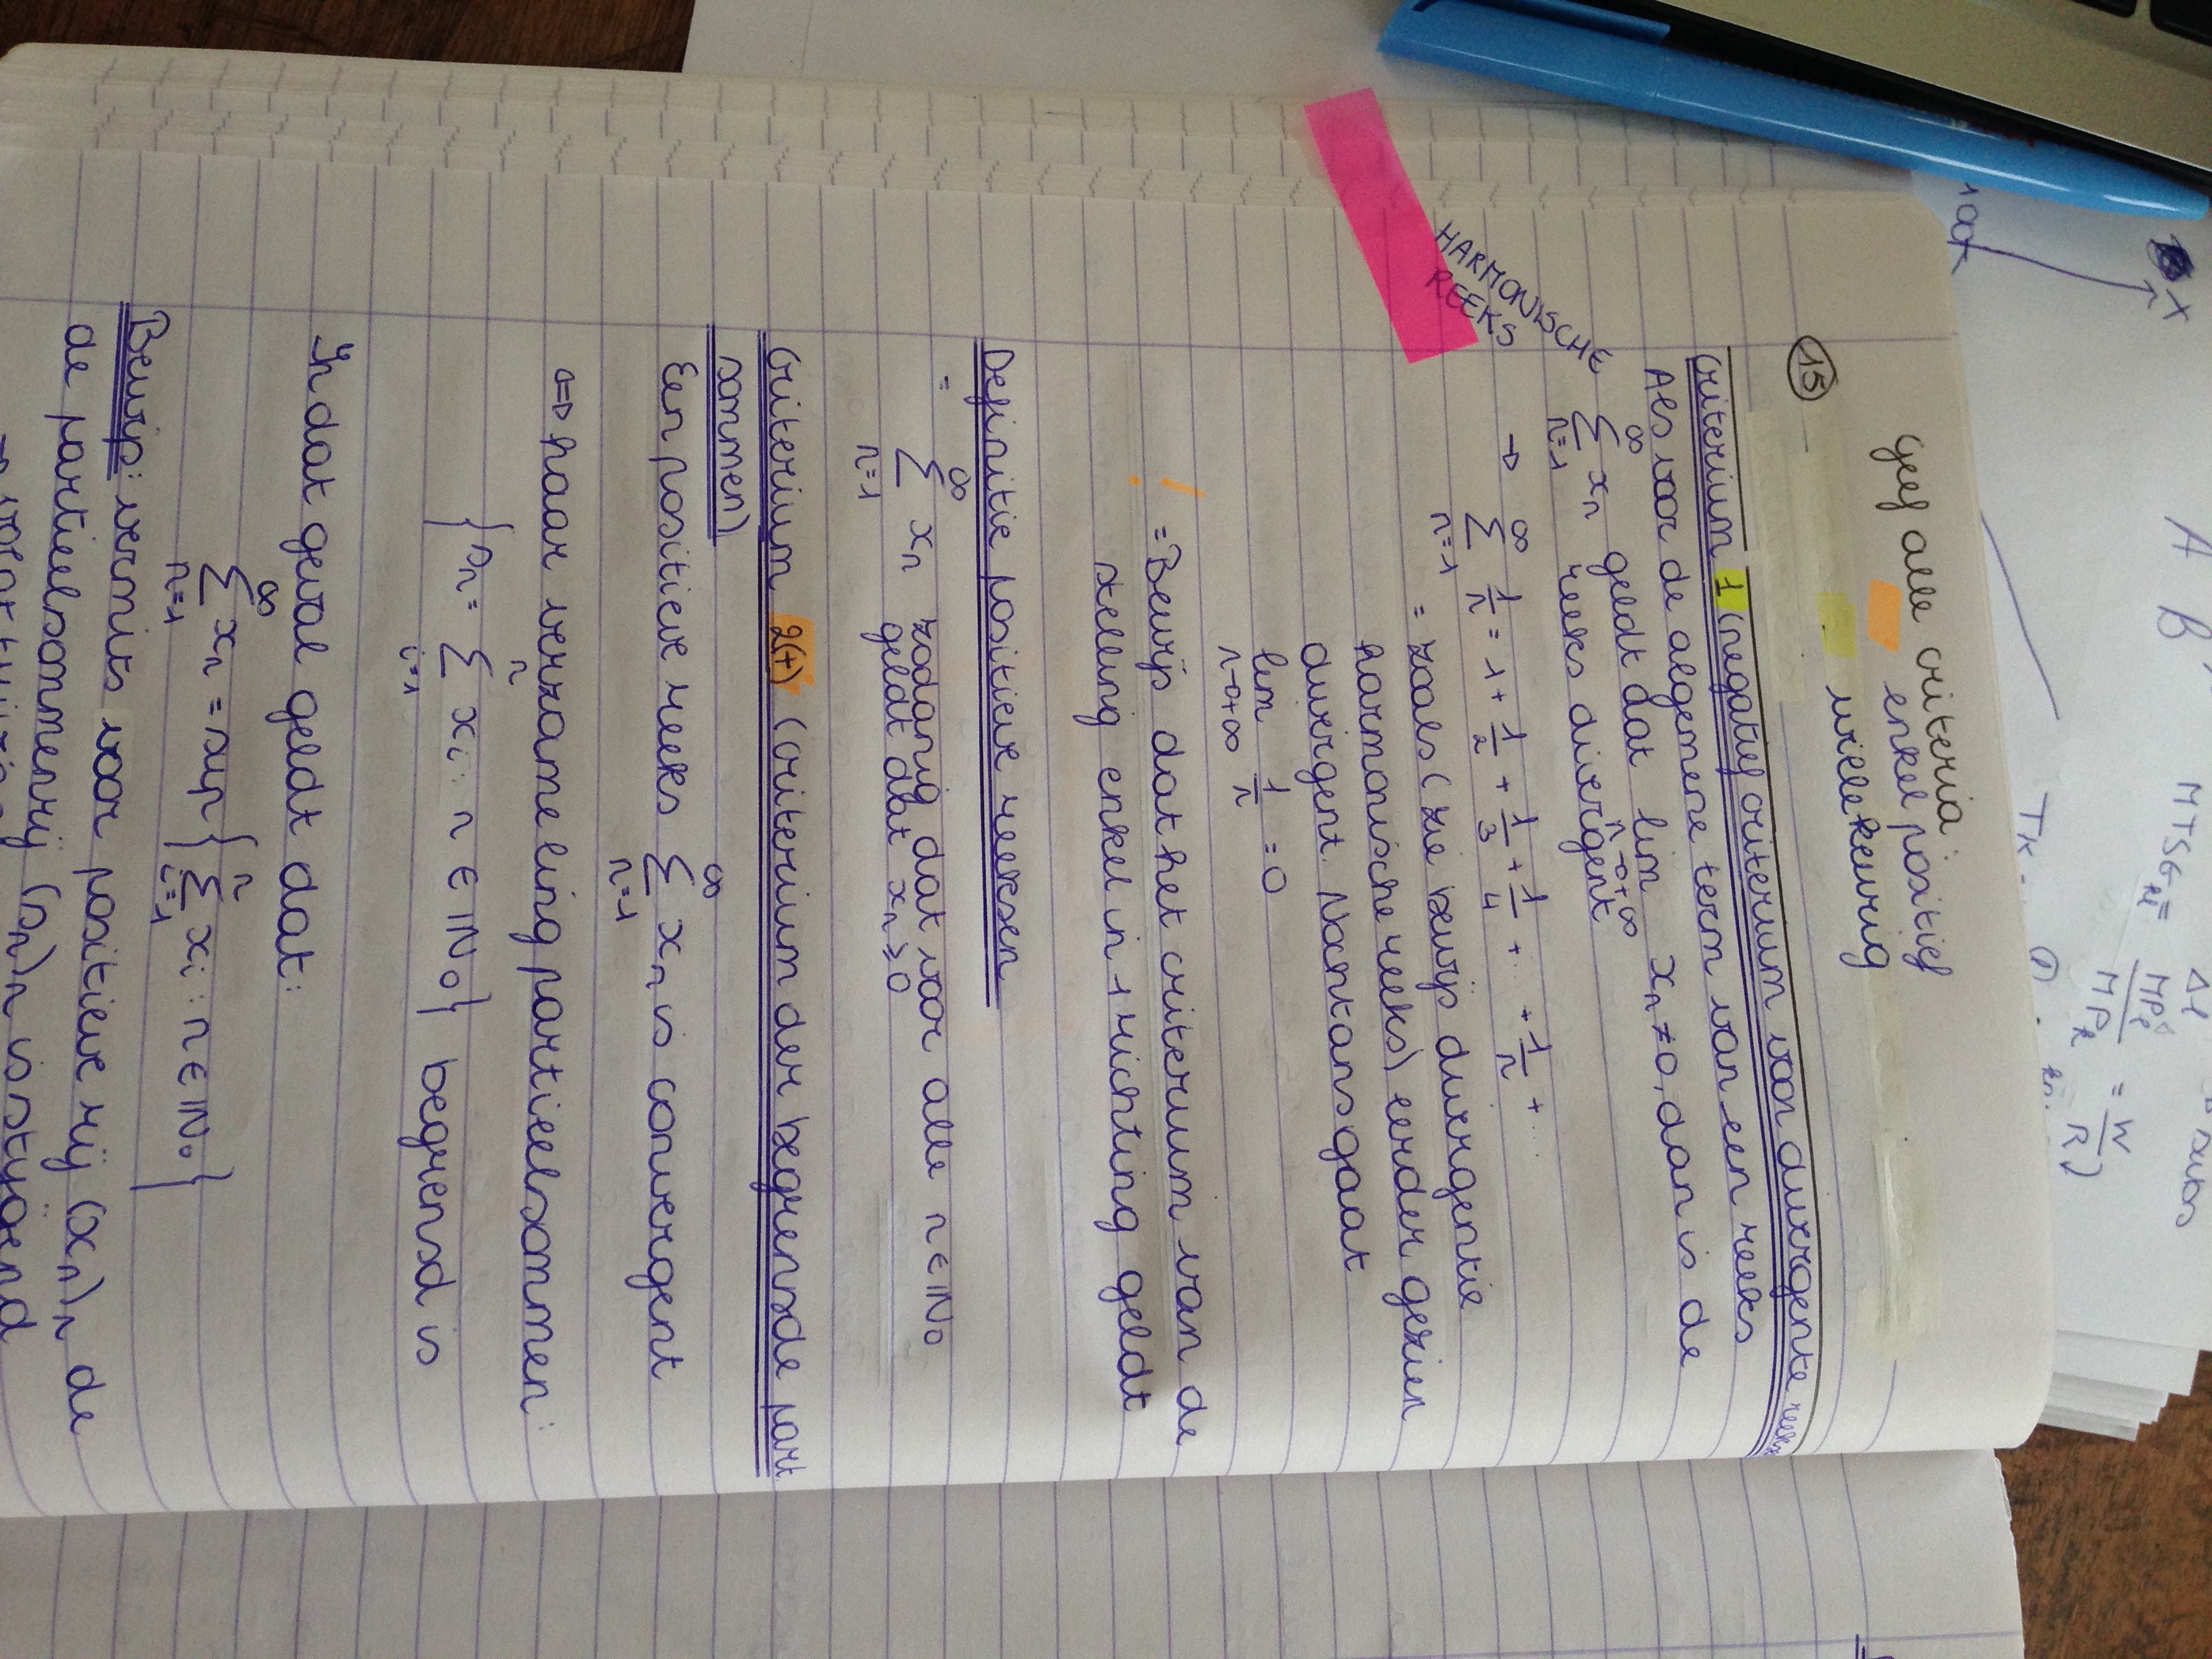 15
Geef alle criteria
enkel positief
willekeurig
Criterium 1 (negatief criterium voor divergente reeks
Als voor de algemene term van een reeks
∞ Σ n=1 xn geldt dat lim n→+∞ xn ≠ 0, dan is de
reeks divergent
HARMONISCHE
REEKS
→ ∞ Σ n=1 1/n = 1 + 1/2 + 1/3 + 1/4 + ... + 1/n + ...
= zoals (zie bewijs divergentie
harmonische reeks) eerder gezien
divergent. Noxtans gaat
lim n→+∞ 1/n = 0
! = Bewijs dat het criterium van de
stelling enkel in 1 richting geldt
Definitie positieve reeksen
= ∞ Σ n=1 xn zodanig dat voor alle n ∈ ℕ0
geldt dat xn ≥ 0
Criterium 2(+) (criterium der begrensde part
sommen)
Een positieve reeks ∞ Σ n=1 xn is convergent
⇔ haar verzameling partieelsommen:
{sn = n Σ i=1 xi : n ∈ ℕ0} begrensd is
In dat geval geldt dat:
∞ Σ n=1 xn = sup {n Σ i=1 xi : n ∈ ℕ0}
Bewijs: vermits voor positieve rij (xn)n de
de partieelsommenrij (sn)n is stijgend
A B'
MTSG
MPl
MPk
= W
R
Tk
100
x